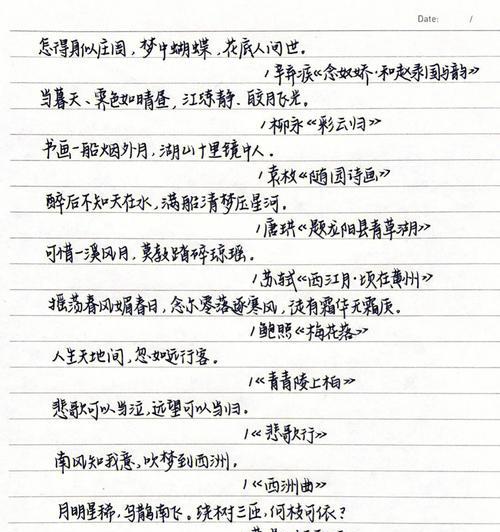 Date: /
怎得身似庄周，梦中蝴蝶，花底人间世。
/辛弃疾《念奴娇·和赵录国与韵》
当暮天、霁色如晴昼，江练静、皎月飞光。
/柳永《彩云归》
书画一船烟外月，湖山十里镜中人。
/袁枚《随园诗画》
醉后不知天在水，满船清梦压星河。
/唐珙《题龙阳县青草湖》
可惜一溪风月，莫教踏碎琼瑶。
/苏轼《西江月·顷在黄州》
摇荡春风媚春日，念尔零落逐寒风，徒有霜华无霜质。
/鲍照《梅花落》
人生天地间，忽如远行客。
/《青青陵上柏》
悲歌可以当泣，远望可以当归。
/《悲歌行》
南风知我意，吹梦到西洲。
/《西洲曲》
月明星稀，乌鹊南飞。绕树三匝，何枝可依？